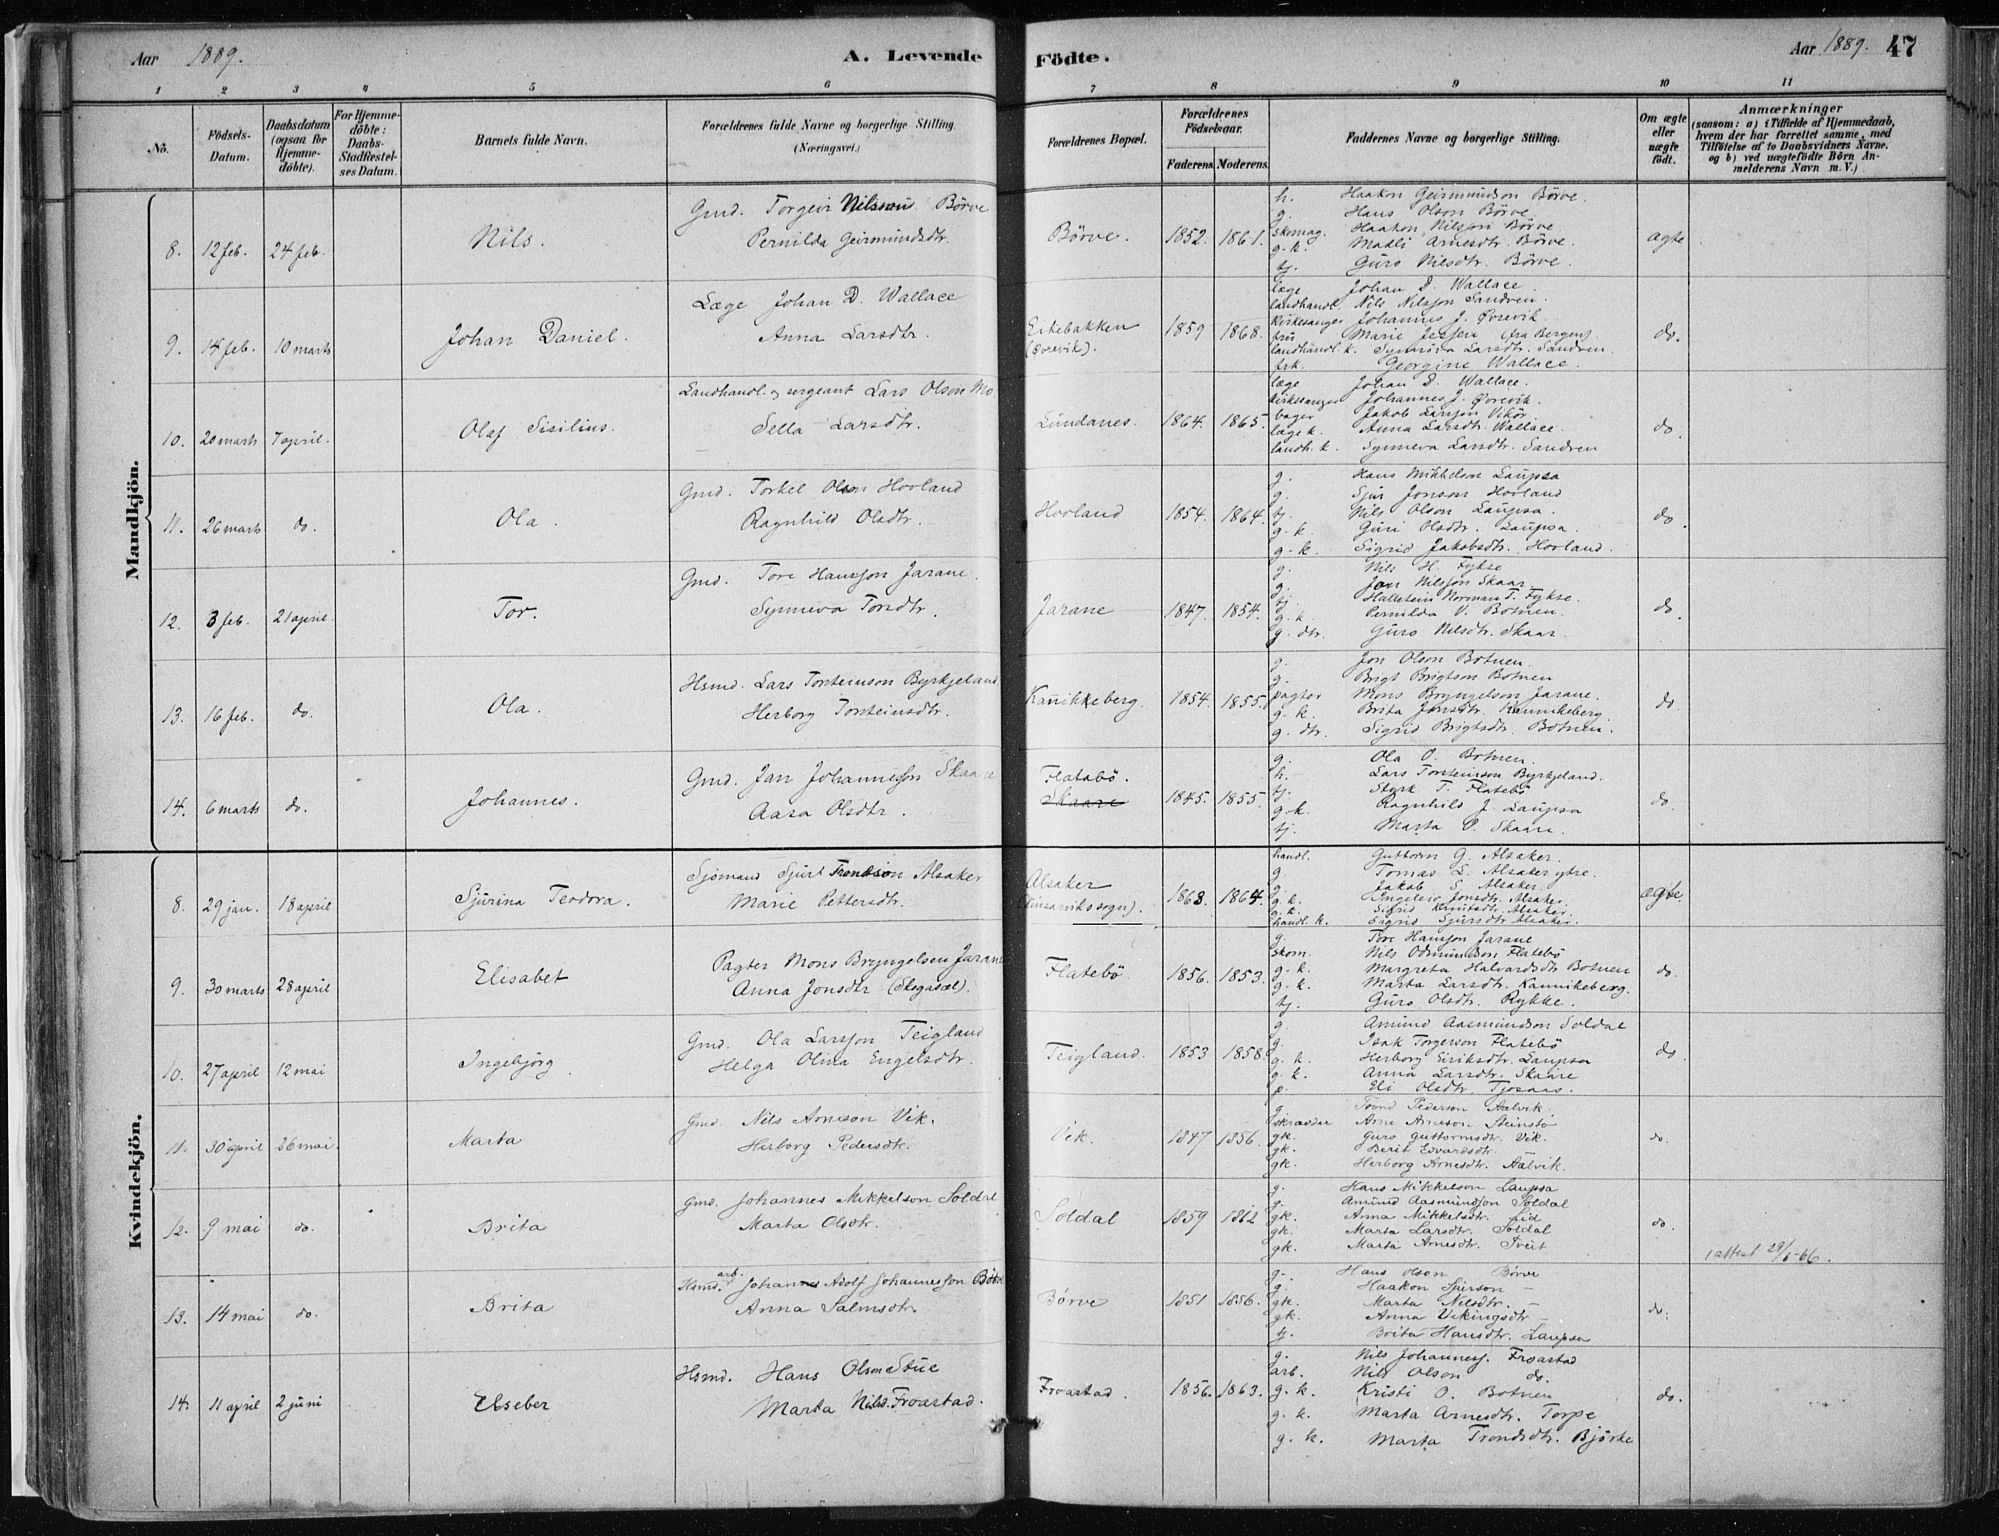 Aar 1889. A. Levende Födte. Aar 1889. 47
1 2 3 4 5 6 7 8 9 10 11
No. Födsels-Datum. Daabsdatum (ogsaa for Hjemme-döbte). For Hjemme-döbte: Daabs-Stadfæstel-ses Datum. Barnets fulde Navn. Forældrenes fulde Navne og borgerlige Stilling. (Næringsvei.) Forældrenes Bopæl. Forældrenes Födselsaar. Faderens Moderens. Faddernes Navne og borgerlige Stilling. Om ægte eller uægte födt. Anmærkninger (saasom: a) i Tilfælde af Hjemmedaab, hvem der har forrettet samme, med Tilföielse af to Daabsvidners Navne, og b) ved uægtefödte Börn An-melderens Navn m. V.)
Mandkjön.
8. 12 feb. 24 feb. Nils. Gmd. Torgeir Nilssen Börve
Pernilda Geirmundsdtr. Börve. 1852. 1861. ægte
h. Haakon Geirmundson Börve.
g. Hans Olson Börve.
skomag. Haakon Nilsson Börve
g. k. Madli Arnesdtr. Börve.
tj. Guro Nilsdtr. Börve.
9. 14 feb. 10 marts Johan Daniel. Læge Johan D. Wallace
Anna Larsdtr. Eikebakken (Övrevik). 1859 1868. do.
læge Johan D. Wallace.
landhandl. Nils Nilsson Sandven.
Kirkesanger Johannes J. Övrevik
fru Marie Jessen (fra Bergen)
landhandl. k. Synnöva Larsdtr. Sandven.
frk. Georgine Wallace.
10. 20 marts 7 april. Olaf Sisilius. Landhandl. og sergeant Lars Olson Mo
Sella Larsdtr. Lundanes. 1864. 1865. do.
læge Johan D. Wallace.
Kirkesanger Johannes J. Övrevik.
bager Jakob Larsson Vikör.
læge k. Anna Larsdtr. Wallace.
landh. k. Synneva Larsdtr. Sandven
11. 26 marts do. Ola. Gmd. Torkel Olson Hovland
Ragnhild Olsdtr. Hovland 1854. 1864. do.
g. Hans Mikkelson Laupsa
g. Sjur Jonson Hovland
tj. Nils Olson Laupsa.
g. k Guri Olsdtr. Laupsa.
g. k. Sigrid Jakobsdtr. Hovland.
12. 3 feb. 21 april. Tor. Gmd. Tore Hansson Jarane.
Synneva Torsdtr. Jarane 1847. 1854. do
g. Nils H. Fykse
g. Jon Nilsson Skaar.
tj. Hallstein Norman T. Fykse.
g. k Pernilda V. Botnen.
g. dtr. Guro Nilsdtr. Skaar.
13. 16 feb. do. Ola. Hsmd. Lars Torsteinson Byrkjeland
Herborg Torsteinsdtr. Kannikeberg 1854. 1855. do.
g. Jon Olson Botnen.
g. Brigt Brigtson Botnen
pagter Mons Bryngelson Jarane.
g. k. Brita Jonsdtr. Kannikeberg.
g. dtr. Sigrid Brigtsdtr. Botnen.
14. 6 marts do. Johannes. Gmd. Jan Johannesson Skaare
Aasa Olsdtr. Flatebö. Skaare 1845. 1855. do.
g. Ola O. Botnen.
h. Lars Torsteinson Byrkjeland.
tj. Sterk T. Flatebö
g. k. Ragnhild J. Laupsa
tj. Marta P. Skaare.
Kvindekjön.
8. 29 jan. 18 april Sjurina Teodora. Sjömand Sjurt Trondson Alsaker
Marie Pettersdtr. Alsaker (Kinsarviks sogn). 1863. 1864. ægte.
handl. Guttorm G. Alsaker.
g Tomas L. Alsaker ytre.
g. Jakob S. Alsaker.
g. k. Ingeleiv Jonsdtr. Alsaker.
g. k. Sigrid Knutsdtr. Alsaker
handl. k. Sigrid Sjursdtr. Alsaker.
9. 30 marts 28 april Elisabet Pagter Mons Bryngelsen Jarane
Anna Jonsdtr (Skogasæl). Flatebö. 1856. 1853. do.
g. Tore Hansson Jarane
skom. Nils Odmundson Flatebö
g. k. Margreta Halvardsdtr Botnen
g. k. Marta Larsdtr. Kannikeberg.
tj. Guro Olsdtr. Rykke.
10. 27 april 12 mai Ingebjörg. Gmd. Ola Larsson Teigland
Helga Olina Engelsdtr. Teigland. 1853 1858. do.
g. Amund Aasmundson Soldal
g. Isak Torgerson Flatebö
g. k. Herborg Eiriksdtr. Laupsa
g. k. Anna Larsdtr. Skaare
p. Eli Olsdtr. Tjosaas.
11. 30 april 26 mai. Marta Gmd. Nils Arneson Vik.
Herborg Pedersdtr. Vik. 1847 1856. do.
g. Trond Pederson Aalvik.
skrædder Arne Arneson Steinstö
gk. Guro Guttormsdtr. Vik.
gk. Berit Edvardsdtr.
gk. Herborg Arnesdtr. Aalvik.
12. 9 mai do. Brita Gmd. Johannes Mikkelson Soldal
Marta Olsdtr. Soldal 1859 1862 do.
g. Hans Mikkelson Laupsa
g. Amund Aasmundson Soldal
gk. Anna Mikkelsdtr. Lid
gk. Marta Larsdtr. Soldal
gk. Marta Arnesdtr. Tveit
1 attest 28/5-66.
13. 14 mai do. Brita Hsmd. arb. Johannes Adolf Johannesson Börve
Anna Salmsdtr. Börve 1851 1856. do.
g. Hans Olson Börve
g. Haakon Sjurson –
gk. Marta Nilsdtr. –
gk. Anna Vikingsdtr –
tj. Brita Hansdtr. Laupsa
14. 11 april 2 juni Elseber Hsmd. Hans Olson Stue
Marta Nilsd. Froastad. Froastad. 1856. 1863. do.
g. Nils Johanness. Froastad
arb. Nils Olson do.
g. k. Kristi O. Botnen
g. k. Marta Arnesdtr. Torpe
g. k. Marta Trondsdtr. Björke